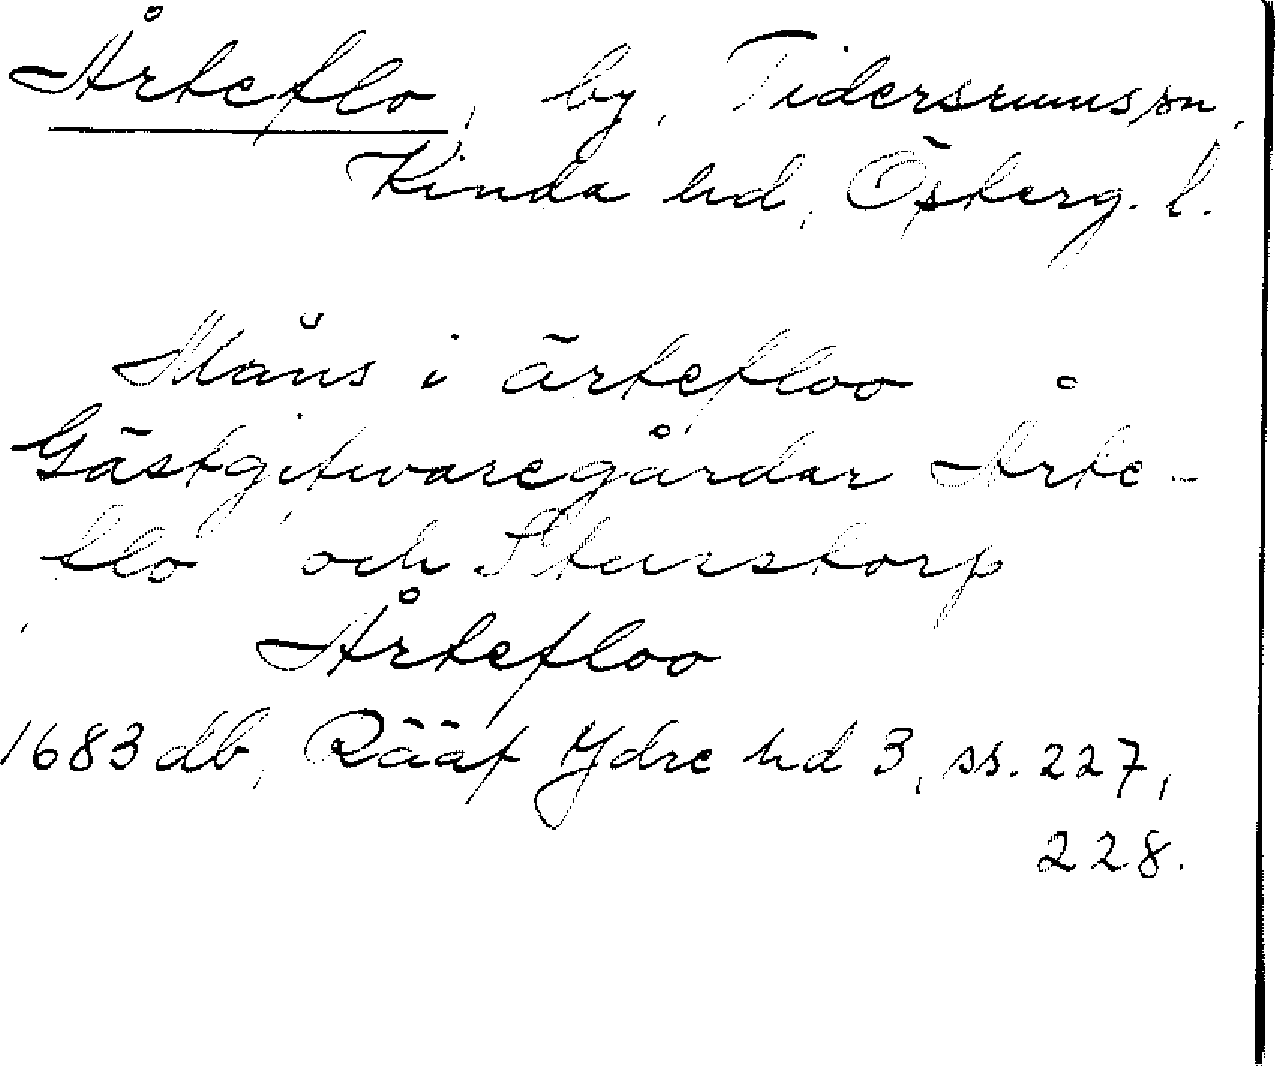 Årteflo, by, Tidersrums sn,
Kinda hd, Österg. l.
Måns i ärtefloo
Gästgifwaregårdar Årte-
flo och Sturstorp
Årtefloo
1683 db, Rääf Ydre hd 3, ss. 227,
228.